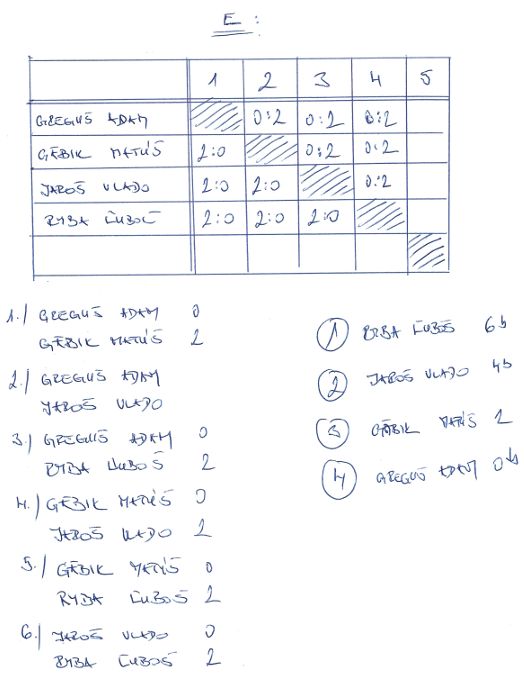 E:
1 2 3 4 5
GREGUŠ ADAM 0:2 0:2 0:2
GÁBIK MATÚŠ 2:0 0:2 0:2
JAROŠ VLADO 2:0 2:0 0:2
RYBA ĽUBOŠ 2:0 2:0 2:0
1./ GREGUŠ ADAM 0
GÁBIK MATÚŠ 2
2./ GREGUŠ ADAM
JAROŠ VLADO
3./ GREGUŠ ADAM 0
RYBA ĽUBOŠ 2
4./ GÁBIK MATÚŠ 0
JAROŠ VLADO 2
5./ GÁBIK MATÚŠ 0
RYBA ĽUBOŠ 2
6./ JAROŠ VLADO 0
RYBA ĽUBOŠ 2
1 RYBA ĽUBOŠ 6b
2 JAROŠ VLADO 4b
3 GÁBIK MATÚŠ 2
4 GREGUŠ ADAM 0b